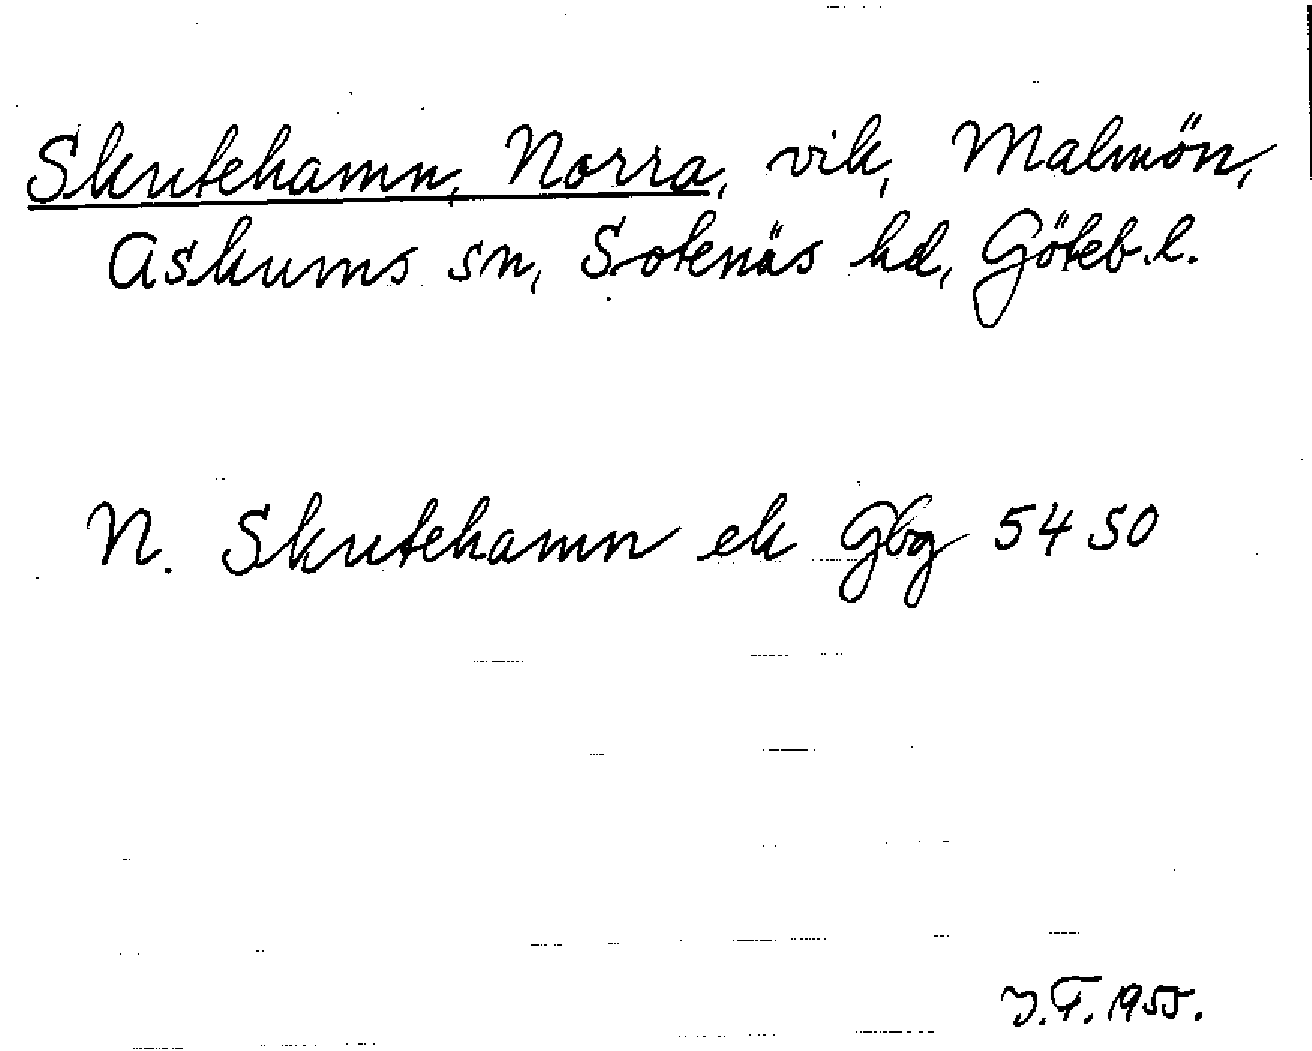 Skutehamn, Norra, vik, Malmön,
Askums sn, Sotenäs hd, Göteb. l.
N. Skutehamn ek Gbg 54 50
J.F. 1955.